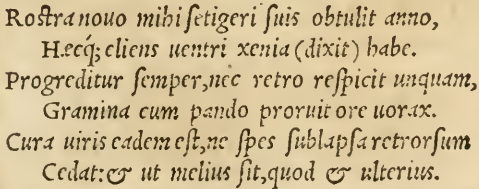 Rostra nouo mihi setigeri suis obtulit anno,
Hæcq́; cliens uentri xenia (dixit) habe.
Progreditur semper, nec retro respicit unquam,
Gramina cum pando proruit ore uorax.
Cura uiris eadem est, ne spes sublapsa retrorsum
Cedat: & ut melius sit, quod & ulterius.